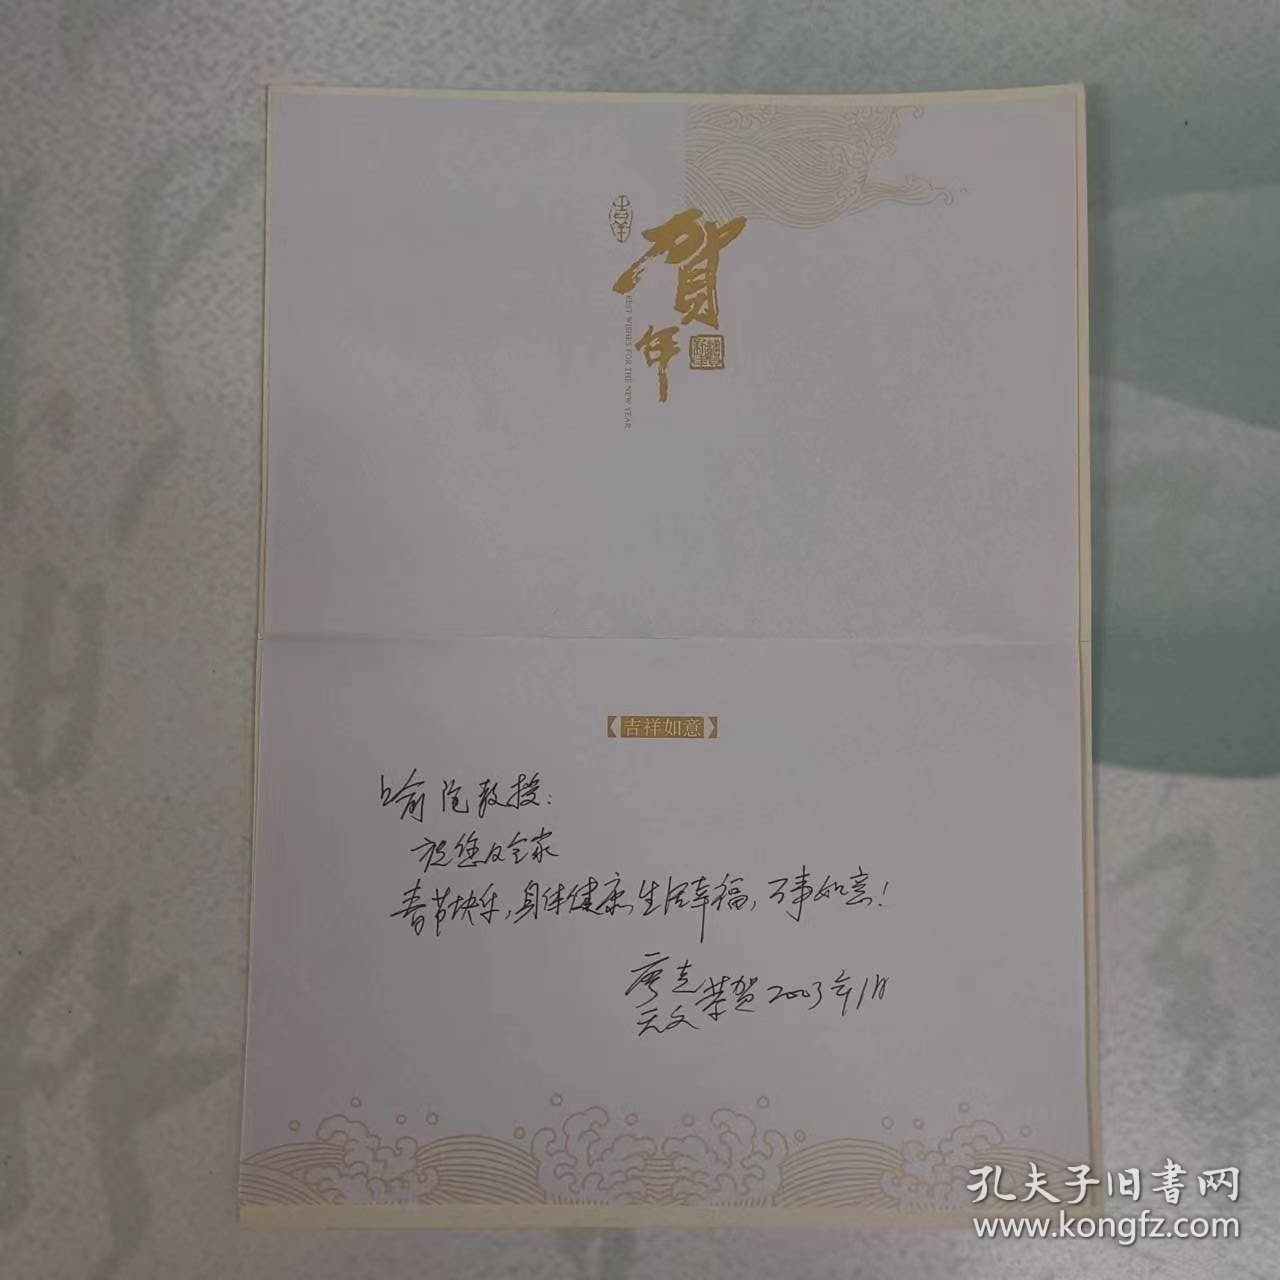 吉羊
贺年
BEST WISHES FOR THE NEW YEAR
吉祥如意
喻沧教授：
祝您及全家
春节快乐，身体健康，生活幸福，万事如意！
廖克
天文 恭贺 2003年1月
孔夫子旧书网
www.kongfz.com